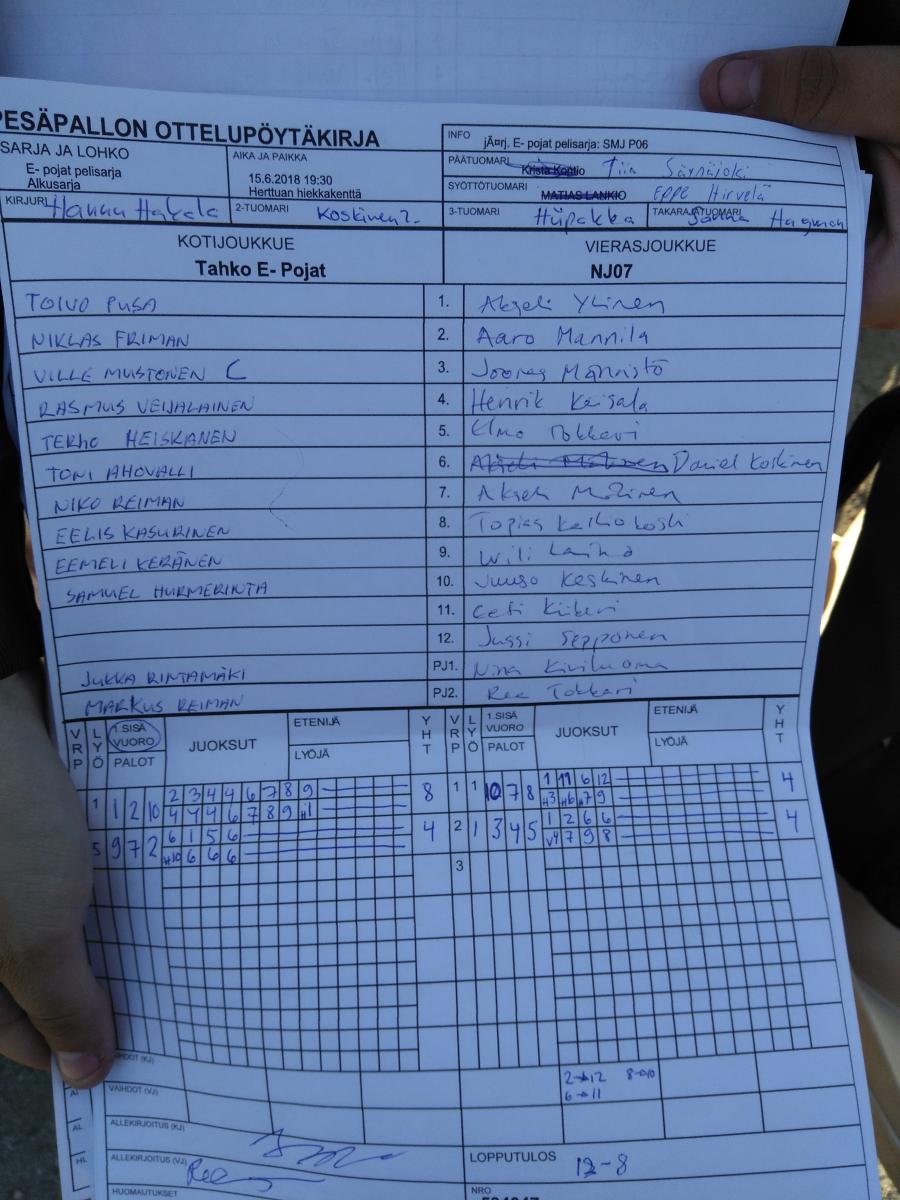 PESÄPALLON OTTELUPÖYTÄKIRJA
SARJA JA LOHKO
E- pojat pelisarja
Alkusarja
AIKA JA PAIKKA
15.6.2018 19:30
Herttuan hiekkakenttä
INFO
jÃ¤rj. E- pojat pelisarja: SMJ P06
PÄÄTUOMARI Krista Kontio Tiia Särnäjoki
SYÖTTÖTUOMARI MATIAS LANKIO Eppe Hirvelä
KIRJURI Hannu Hakala
2-TUOMARI Koskinen?
3-TUOMARI Hiipakka
TAKARAJATUOMARI Sanna Hagman
KOTIJOUKKUE
Tahko E- Pojat
VIERASJOUKKUE
NJ07
TOIVO PUSA 1. Akseli Ylinen
NIKLAS FRIMAN 2. Aaro Mannila
VILLE MUSTONEN C 3. Joonas Männistö
RASMUS VEIJALAINEN 4. Henrik Keisala
TERHO HEISKANEN 5. Elmo Tokkari
TONI AHOVALLI 6. Daniel Koskinen
NIKO REIMAN 7. Akseli
EELIS KASURINEN 8. Topias
EEMELI KERÄNEN 9.
SAMUEL HURMERINTA 10. Juuso Keskinen
11.
12. Jussi Sepponen
JUKKA RINTAMÄKI PJ1. Nina Kiviluoma
MARKUS REIMAN PJ2. Rea Tokkari
VRP LYÖ 1.SISÄ VUORO PALOT JUOKSUT ETENIJÄ LYÖJÄ YHT VRP LYÖ 1.SISÄ VUORO PALOT JUOKSUT ETENIJÄ LYÖJÄ YHT
1 1 2 10 2 3 4 4 6 7 8 9 8 1 1 10 7 8 1 11 6 12 4
4 4 4 6 7 8 9 H1 H3 H6 H7 9
5 9 7 2 6 1 5 6 4 2 1 3 4 5 1 2 6 6 4
H10 6 6 6 V4 7 9 8
3
VAIHDOT (KJ)
2→12 8→10
6→11
VAIHDOT (VJ)
ALLEKIRJOITUS (KJ)
ALLEKIRJOITUS (VJ) Rea
LOPPUTULOS 12-8
HUOMAUTUKSET
NRO